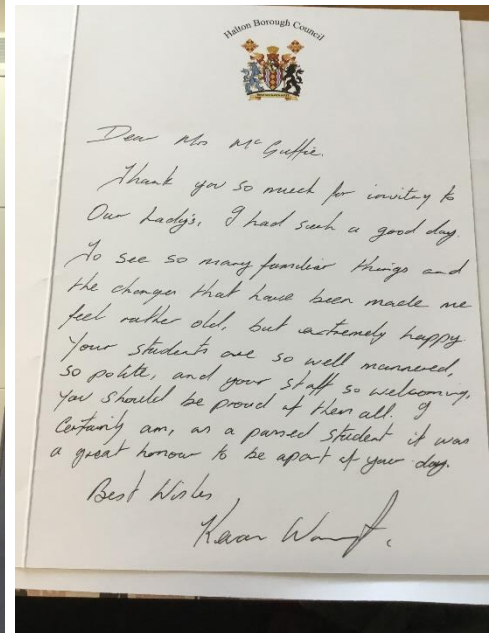 Halton Borough Council
Dear Mrs McGuffie.
Thank you so much for invitey to
Our Lady's, I had such a good day.
To see so many familiar things and
the changes that have been made me
feel rather old, but extremely happy.
Your students are so well mannered,
so polite, and your staff so welcoming,
you should be proud of them all. I
certainly am, as a passed student it was
a great honour to be apart of your day.
Best Wishes
Kevan